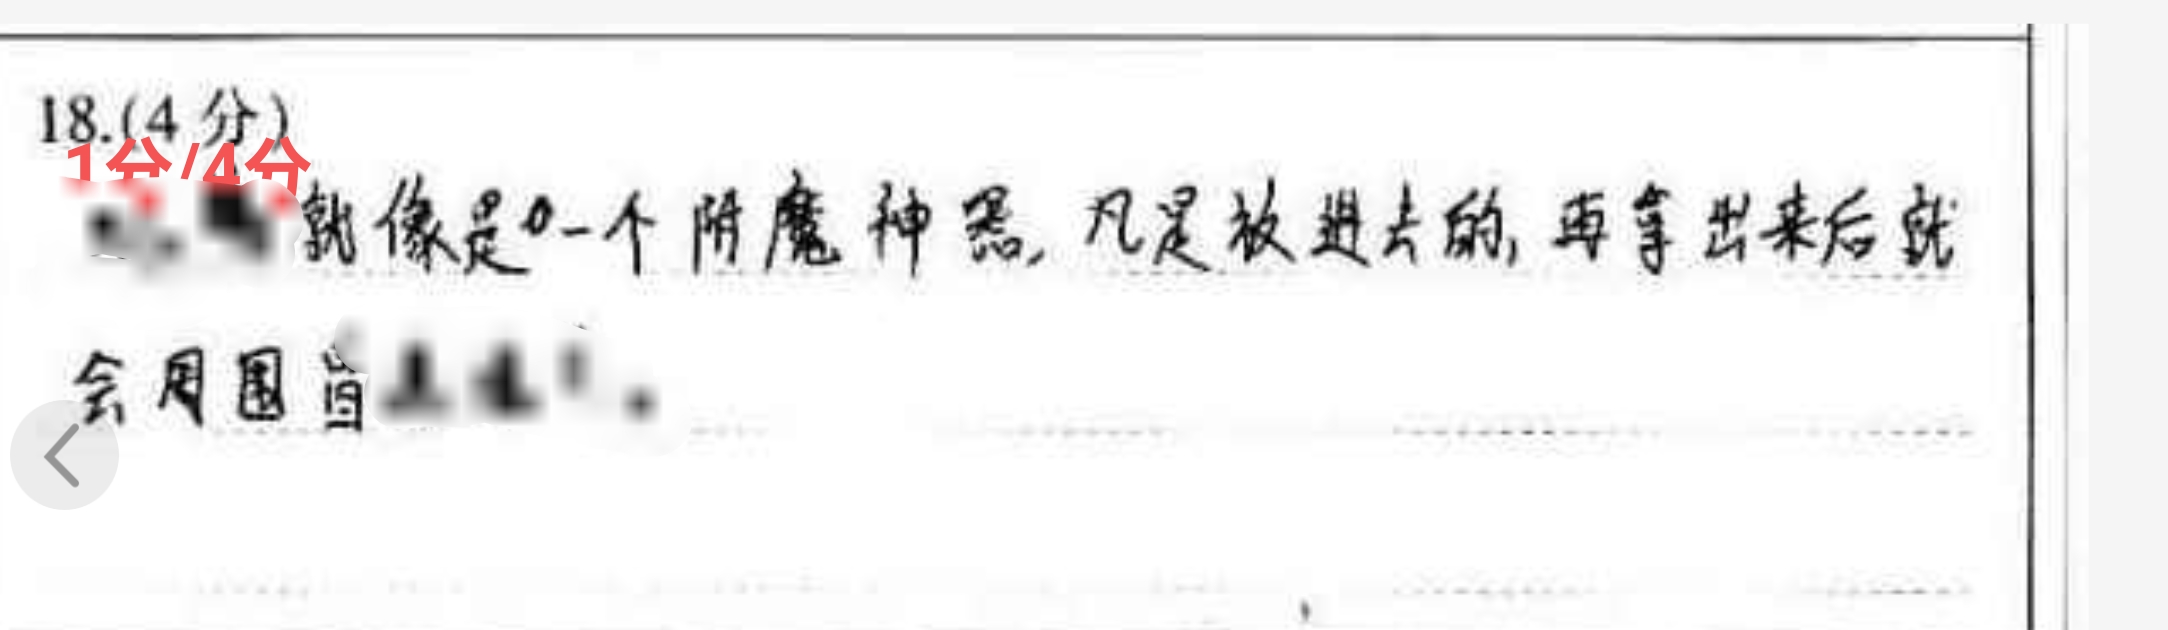 18.(4 分)
1分/4分
就像是一个阴魔神器,凡是放进去的,再拿出来后就
会用围